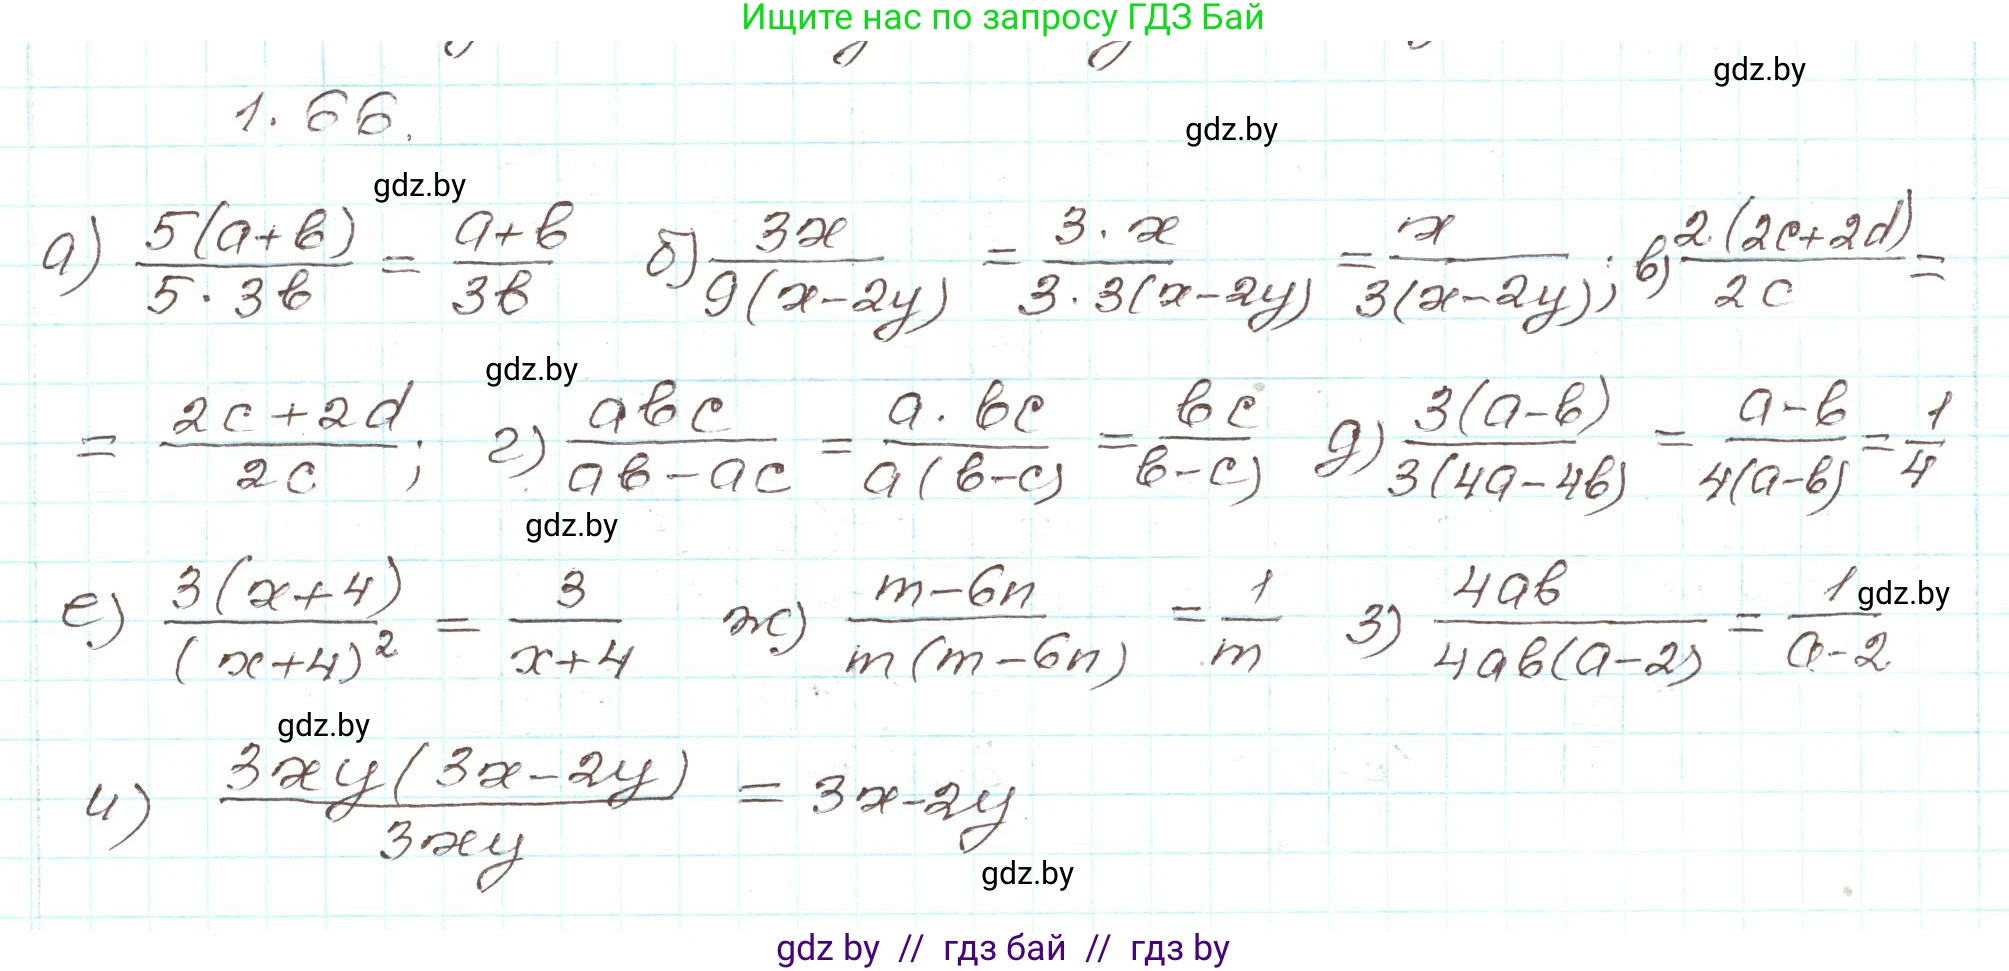 Ищите нас по запросу ГДЗ Бай
gdz.by
1.66.
gdz.by
gdz.by
а) 5(a+b)/(5·3b) = (a+b)/(3b) б) 3x/(9(x-2y)) = 3·x/(3·3(x-2y)) = x/(3(x-2y)); в) 2·(2c+2d)/(2c) =
gdz.by
= (2c+2d)/(2c); г) abc/(ab-ac) = a·bc/(a(b-c)) = bc/(b-c) д) 3(a-b)/(3(4a-4b)) = (a-b)/(4(a-b)) = 1/4
gdz.by
е) 3(x+4)/(x+4)² = 3/(x+4) ж) (m-6n)/(m(m-6n)) = 1/m з) 4ab/(4ab(a-2)) = 1/(a-2)
gdz.by
gdz.by
и) 3xy(3x-2y)/(3xy) = 3x-2y
gdz.by
gdz by // гдз бай // гдз by